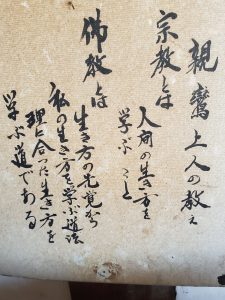 親鸞上人の教え
宗教とは
人間の生き方を
学ぶこと
佛教とは
生き方の先覚から
私の生き方を学ぶ道法
理に合った生き方を
学ぶ道である